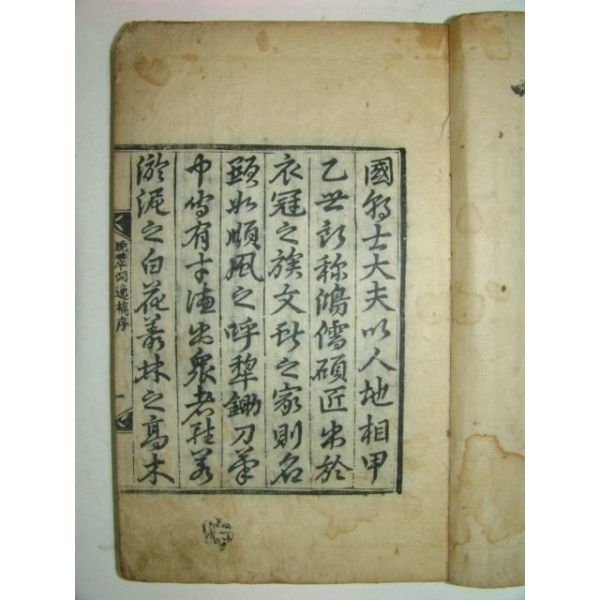 國朝士大夫以人地相甲
乙世所稱鴻儒碩匠出於
衣冠之族文獻之家則名
顯如順風之呼犁鋤刀筆
中有才德出衆者雖若
淤泥之白花叢林之高木
晩翠洞逸稿序
一